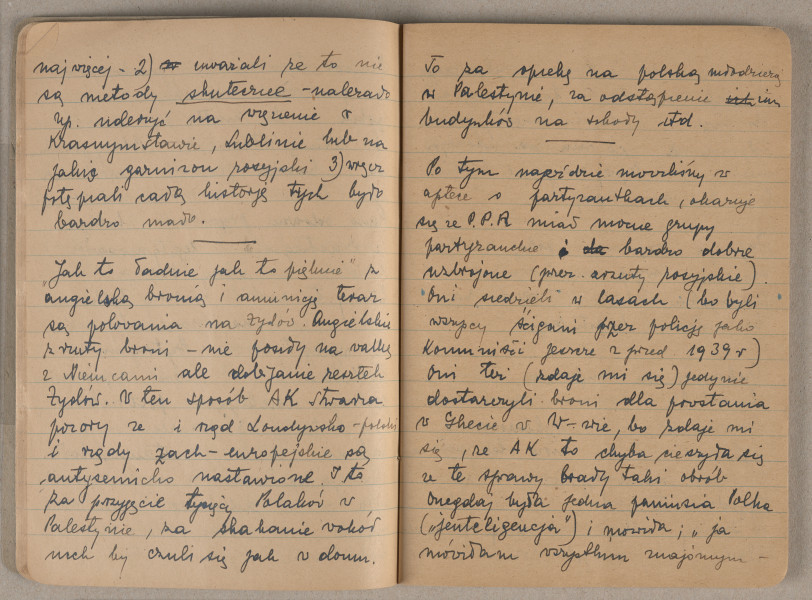 najwięcej - 2) uważali że to nie
są metody skuteczne - należało
np. uderzyć na więzienie w
Krasnymstawie, Lublinie lub na
jakiś garnizon rosyjski 3) wręcz
potępiali całą historję tych było
bardzo mało.
"Jak to ładnie jak to pięknie" z
angielską bronią i amunicją teraz
są polowania na żydów. Angielskie
zrzuty broni - nie poszły na walkę
z Niemcami ale dobijanie resztek
żydów. W ten sposób AK stwarza
pozory że i rząd Londyńsko-polski
i rządy zach-europejskie są
antysemicko nastawione. I to
za przyjęcie tysięcy Polaków w
Palestynie, za skakanie wokół
nich by czuli się jak w domu.
To za opiekę na polską młodzieżą
w Palestynie, za odstąpienie im
budynków na szkoły itd.
Po tym napadzie mówiliśmy w
aptece o partyzantkach, okazuje
się że P.P.R miał mocne grupy
partyzanckie i bardzo dobrze
uzbrojone (przez zrzuty rosyjskie).
Oni siedzieli w lasach (bo byli
wszyscy ścigani przez policję jako
Komuniści jeszcze z przed 1939 r)
Oni też (zdaje mi się) jedynie
dostarczyli broni dla powstania
w Ghecie w W-wie, bo zdaje mi
się, że AK to chyba cieszyła się
że te sprawy brały taki obrót
Onegdaj była jedna paniusia Polka
("jenteligencja") i mówiła; "ja
mówiłam wszystkim znajomym -